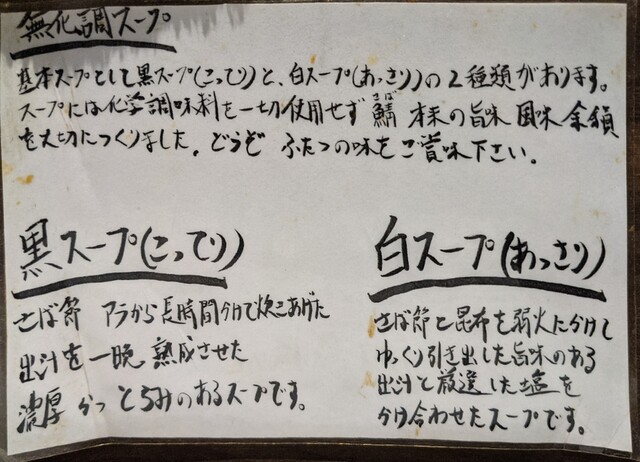 無化調スープ
基本スープとして黒スープ(こってり)と、白スープ(あっさり)の2種類があります。
スープには化学調味料を一切使用せず 鯖(さば) 本来の旨味 風味 余韻
を大切につくりました。どうぞ ふたつの味をご賞味下さい。
黒スープ(こってり)
さば節 アラから長時間かけて炊きあげた
出汁を一晩 熟成させた
濃厚 かつ とろみのあるスープです。
白スープ(あっさり)
さば節と昆布を弱火にかけて
ゆっくり引き出した旨味のある
出汁と厳選した塩を
かけ合わせたスープです。